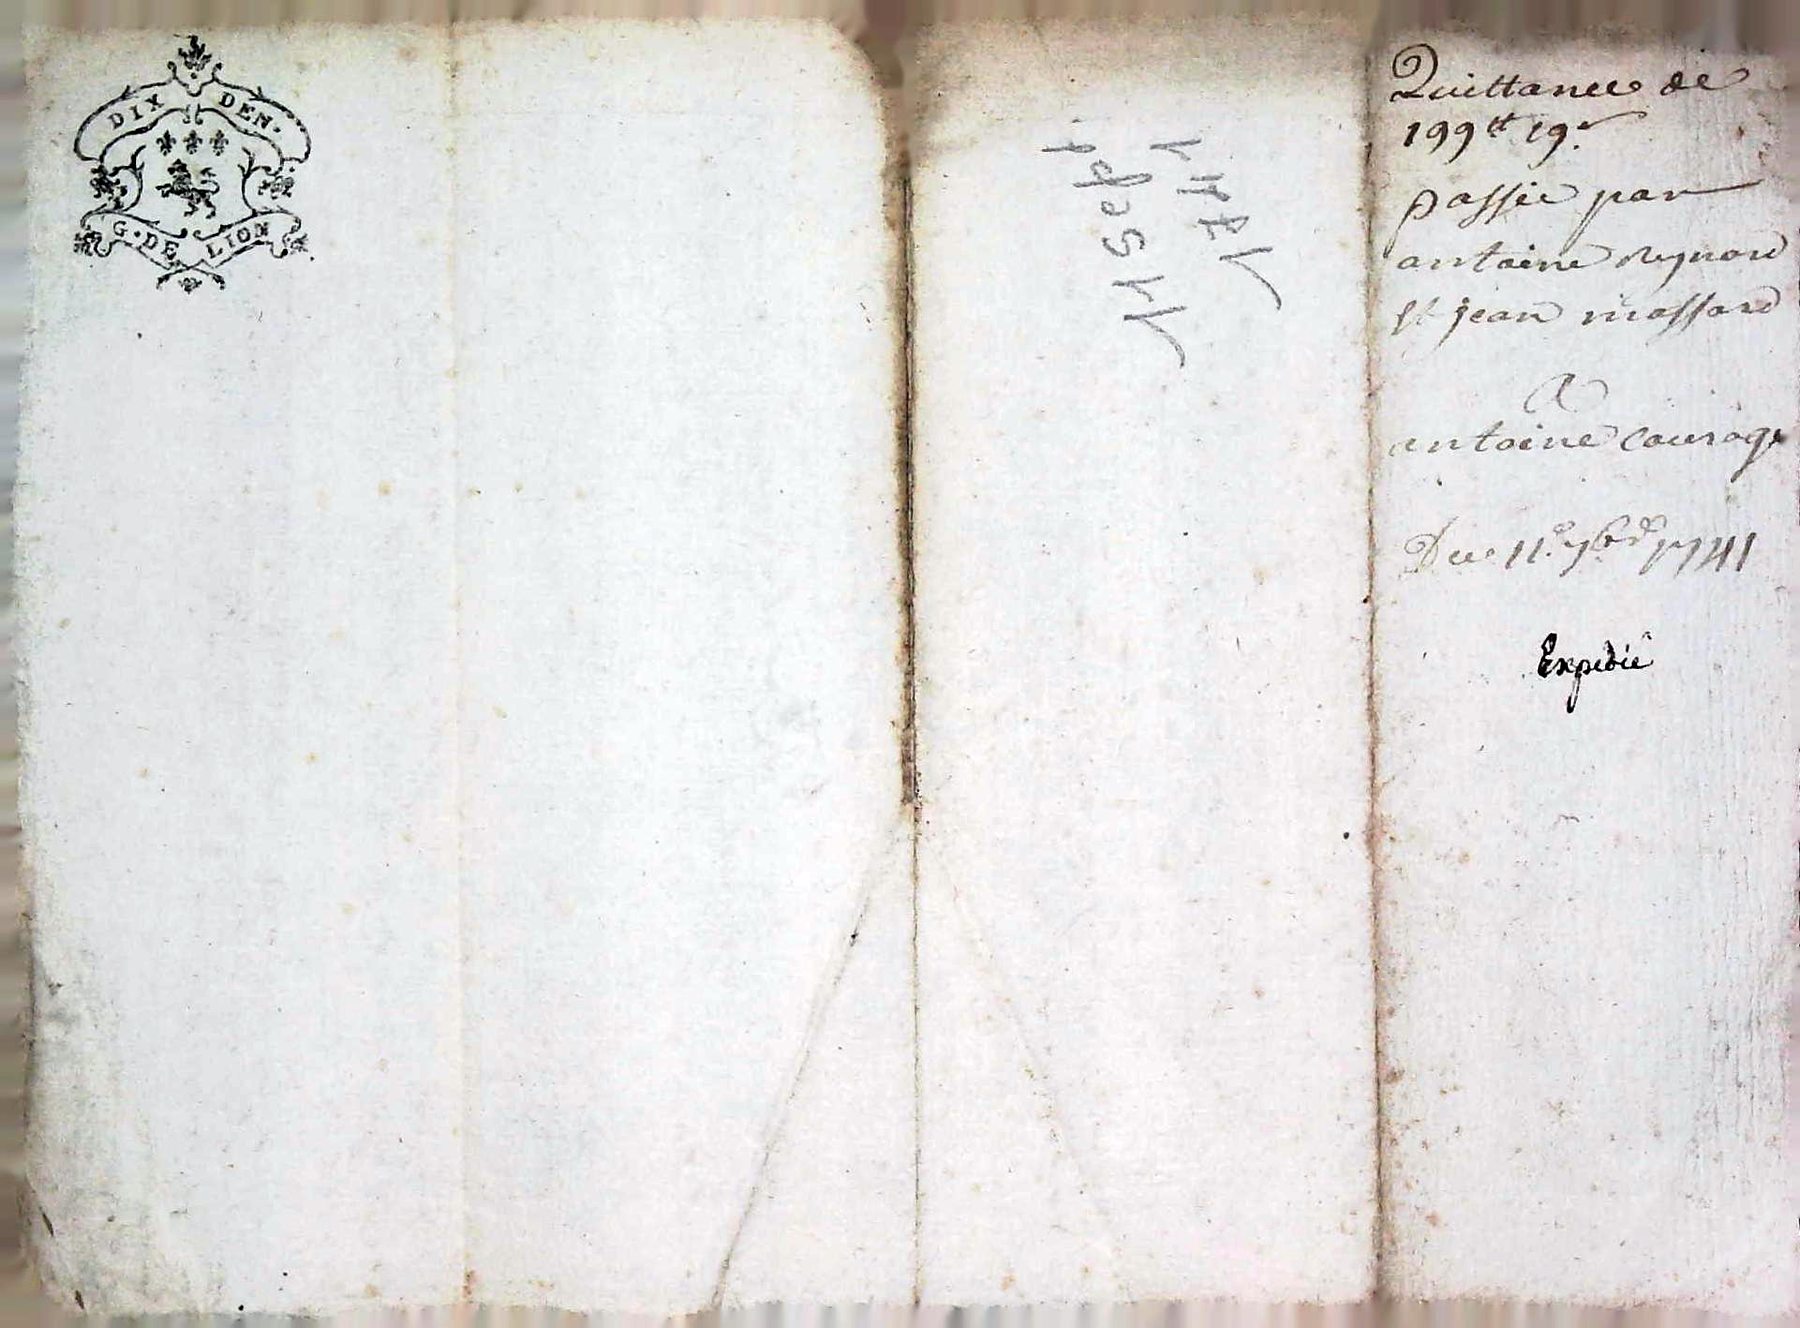 DIX DEN.
G. DE LION
11 Sept
1741
Quittance de
199tt 19s
passée par
antoine Reynard
et jean massard
A
antoine courage
Du 11e 7bre 1741
Expedié